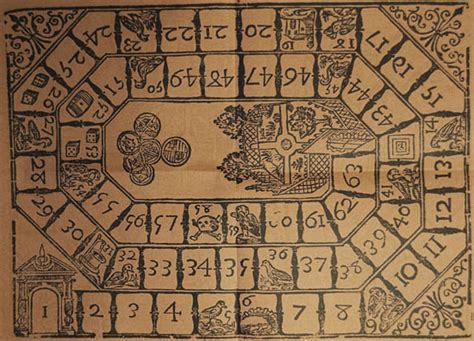 1 2 3 4 7 8
10 11 12 13 15 16 17
18 20 21 22 23 24
25 26 27 28 29 30
32 33 34 35 37 38 39 40
43 44 46 47 48 49
51 52 55 56 57 58 60 61 62 63